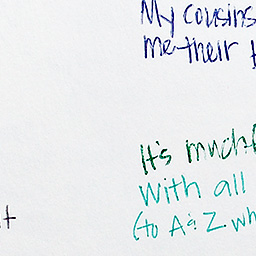 My cousins
me their
It's much
With all
(to A & Z wh